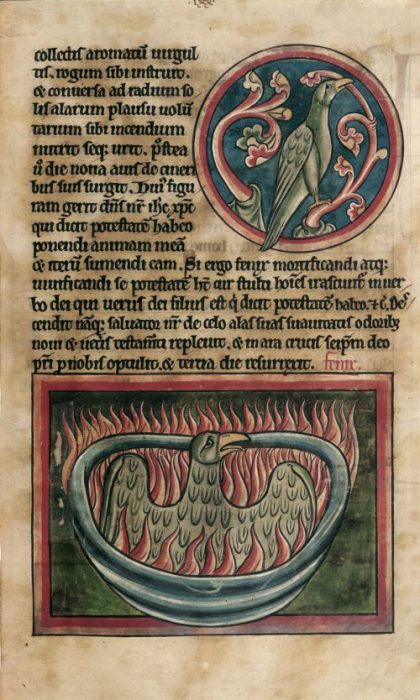 collectis aromatū uirgul
tis. rogum sibi instruit.
& conuersa ad radium so
lis alarum plausu uolū
tarium sibi incendium
nutrit seq; urit. Postea
ū die nona auis de cineri
bus suis surgit. Hui⁹ figu
ram gerit dn̄s nr̄ ihc̄ xp̄c
qui dicit potestatē habeo
ponendi animam meā
& iterū sumendi eam. Si ergo fenix mortificandi atq;
uiuificandi se potestatē h̄t cur stulti hoīes irascunt᷑ in uer
bo dei qui uerus dei filius est q̇ dicit potestatē habeo &c̄. Des
cendit nāq; saluator nr̄ de celo alas suas suauitatis odorib;
noui & uet̄is testam̄ti repleuit. & in ara crucis seip̄m deo
pr̄i p̄ nobis optulit. & tertia die resurrexit. fenix.